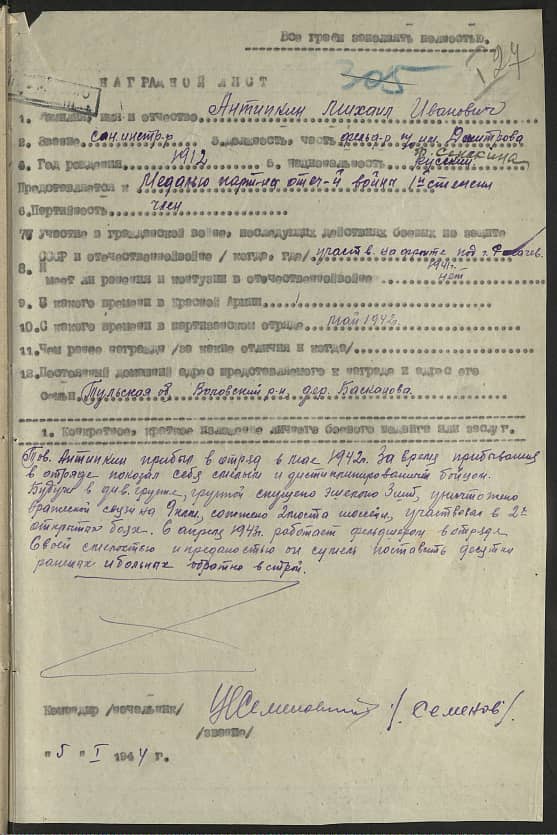 Все графы заполнять полностью.
305
127
НАГРАДНОЙ ЛИСТ
1. Фамилия, имя и отчество Антипкин Михаил Иванович
2. Звание сан.инстр-р 3. Должность, часть фельд-р им. Дмитрова
4. Год рождения 1912 5. Национальность Русский
Представляется к Медалью парт-на отеч-й война 1й степени
6. Партийность член
7. Участие в гражданской войне, последующих действиях боевых по защите
СССР и отечественной войне / когда, где/ участв. на фронте под г.
1941г.
8. Имеет ли ранения и контузии в отечественной войне нет
9. С какого времени в Красной Армии
10. С какого времени в партизанском отряде май 1942г.
11. Чем ранее награжден /за какие отличия и когда/
12. Постоянный домашний адрес представляемого к награде и адрес его
семьи Тульская об. Воловский р-н, дер. Баскакова.
1. Конкретное, краткое изложение личного боевого подвига или заслуг.
Тов. Антипкин прибыл в отряд в мае 1942г. За время прибывания
в отряде показал себя смелым и дисциплинированным бойцом.
Будучи в див. группе, группой спущено эшелона 3 шт, уничтожено
вражеской связи на 9 км, сожжено 2 моста шоссейн, участвовал в 2х
открытах боях. С апреля 1943г. работает фельдшером в отряде
Своей смелостью и преданостью он сумел поставить десятки
раненых и больных обратно в строй.
Командир /начальник/ Семеновский /. Семенов/.
/звание/
" 5 " I 1944г.